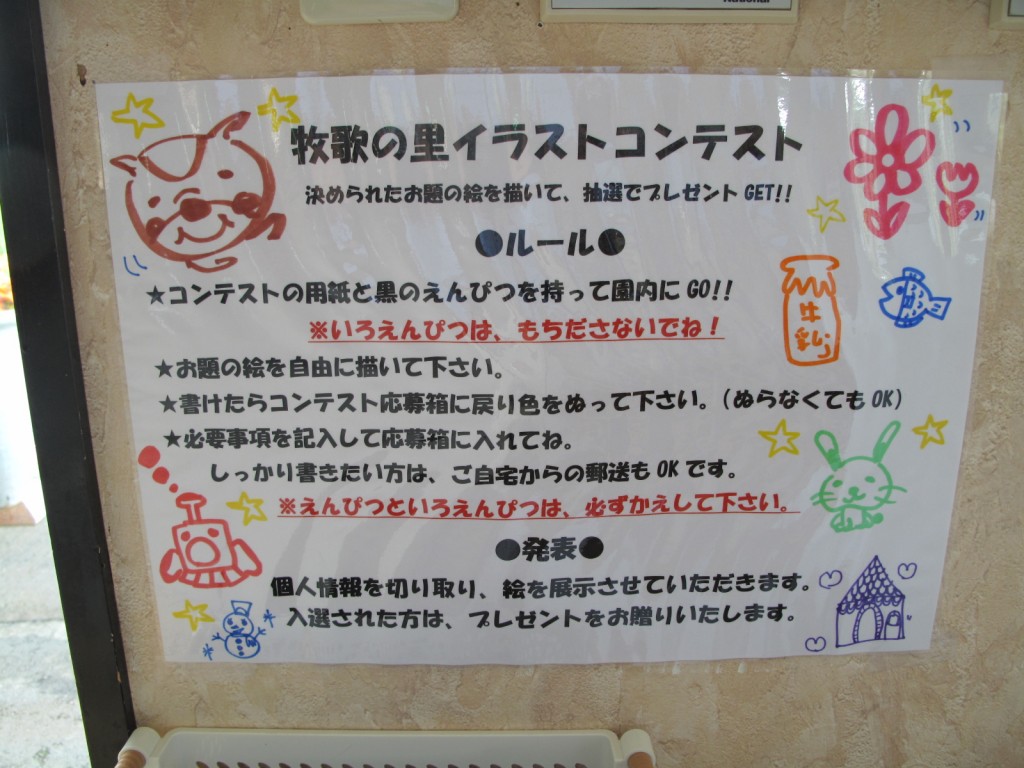 National
牧歌の里イラストコンテスト
決められたお題の絵を描いて、抽選でプレゼント GET!!
●ルール●
★コンテストの用紙と黒のえんぴつを持って園内に GO!!
※いろえんぴつは、もちださないでね！
★お題の絵を自由に描いて下さい。
★書けたらコンテスト応募箱に戻り色をぬって下さい。（ぬらなくても OK）
★必要事項を記入して応募箱に入れてね。
しっかり書きたい方は、ご自宅からの郵送も OK です。
※えんぴつといろえんぴつは、必ずかえして下さい。
●発表●
個人情報を切り取り、絵を展示させていただきます。
入選された方は、プレゼントをお贈りいたします。
牛乳